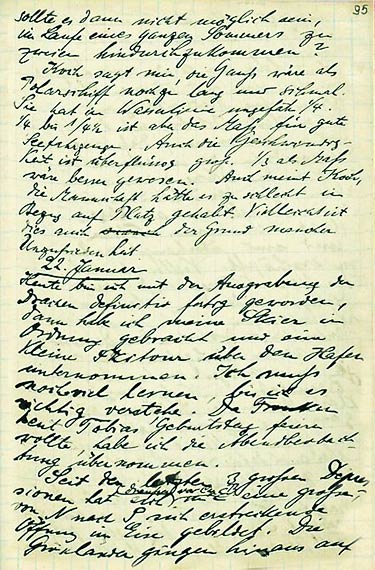 95
sollte es dann nicht möglich sein,
im Laufe eines ganzen Sommers zu
zweien hindurchzukommen?
Koch sagt mir, die Gauß wäre als
Polarschiff noch zu lang und schmal.
Sie hat in Wasserlinie ungefähr 1/4.
1/4 bis 1/4½ ist aber das Maß für gute
Seefahrzeuge. Auch die Geschwindig-
keit ist überflüssig groß. 1/3 als Maß
wäre besser gewesen. Auch meint Koch,
die Mannschaft hätte es zu schlecht in
Bezug auf Platz gehabt. Vielleicht ist
dies auch der Grund mancher
Unzufriedenheit
22. Januar
Heute bin ich mit der Ausgrabung der
Drachen definitiv fertig geworden,
dann habe ich meine Skier in
Ordnung gebracht und eine
kleine Skitour über den Hafen
unternommen. Ich muß
noch viel lernen bis ich es
richtig verstehe. Da
heut Tobias Geburtstag feiern
wollte, habe ich die Abendbeobach-
tung übernommen.
Seit den letzten 3 großen Depres
sionen hat sich eine große
von N nach S sich erstreckende
Öffnung im Eise gebildet. Die
Grönländer gingen hinaus auf